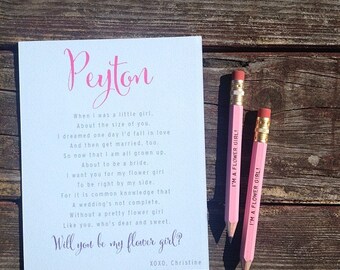 Peyton
When I was a little girl,
About the size of you,
I dreamed one day I'd fall in love
And then get married, too.
So now that I am all grown up,
About to be a bride,
I want you for my flower girl
To be right by my side.
For it is common knowledge that
A wedding's not complete,
Without a pretty flower girl
Like you, who's dear and sweet.
Will you be my flower girl?
XOXO, Christine
I'M A FLOWER GIRL!
I'M A FLOWER GIRL!